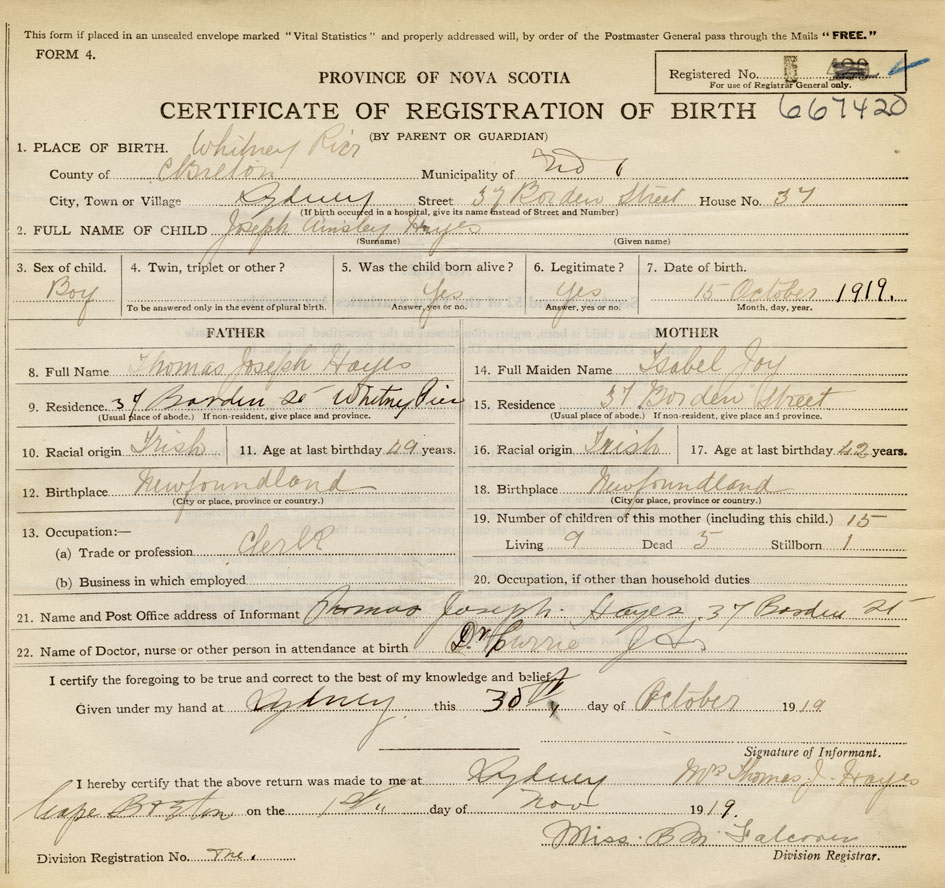 This form if placed in an unsealed envelope marked "Vital Statistics" and properly addressed will, by order of the Postmaster General pass through the Mails "FREE."
FORM 4.
Registered No.
For use of Registrar General only.
PROVINCE OF NOVA SCOTIA
CERTIFICATE OF REGISTRATION OF BIRTH 667420
(BY PARENT OR GUARDIAN)
1. PLACE OF BIRTH. Whitney Pier
County of C Breton Municipality of
City, Town or Village Sydney Street 37 Borden Street House No. 37
(If birth occurred in a hospital, give its name instead of Street and Number)
2. FULL NAME OF CHILD Joseph Ainsley Hayes
(Surname) (Given name)
3. Sex of child. 4. Twin, triplet or other? 5. Was the child born alive? 6. Legitimate? 7. Date of birth.
Boy Yes Yes 15 October 1919.
To be answered only in the event of plural birth. Answer, yes or no. Answer, yes or no. Month, day, year.
FATHER MOTHER
8. Full Name Thomas Joseph Hayes 14. Full Maiden Name Isabel Joy
9. Residence. 37 Borden St Whitney Pier 15. Residence 37 Borden Street
(Usual place of abode.) If non-resident, give place and province. (Usual place of abode.) If non-resident, give place and province.
10. Racial origin Irish 11. Age at last birthday 49 years. 16. Racial origin Irish 17. Age at last birthday 42 years.
12. Birthplace Newfoundland 18. Birthplace Newfoundland
(City or place, province or country.) (City or place, province or country.)
13. Occupation:— 19. Number of children of this mother (including this child.) 15
(a) Trade or profession Clerk Living 9 Dead 5 Stillborn 1
(b) Business in which employed 20. Occupation, if other than household duties
21. Name and Post Office address of Informant Thomas Joseph Hayes 37 Borden St
22. Name of Doctor, nurse or other person in attendance at birth Dr Currie
I certify the foregoing to be true and correct to the best of my knowledge and belief,
Given under my hand at Sydney this 30th day of October 1919
Signature of Informant.
I hereby certify that the above return was made to me at Sydney Mrs Thomas J. Hayes
Cape Breton on the 1st day of Nov 1919.
Miss. B. M. Falconer
Division Registrar.
Division Registration No.